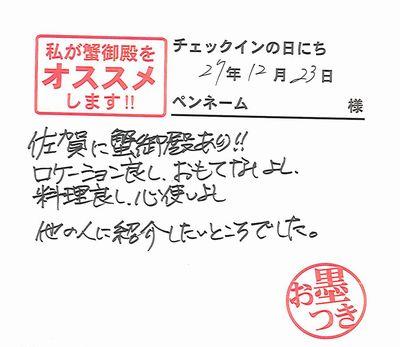 私が蟹御殿を
オススメ
します!!
チェックインの日にち
27年12月23日
ペンネーム 様
佐賀に蟹御殿あり!!
ロケーション良し、おもてなしよし、
料理良し、心使いよし
他の人に紹介したいところでした。
お墨つき